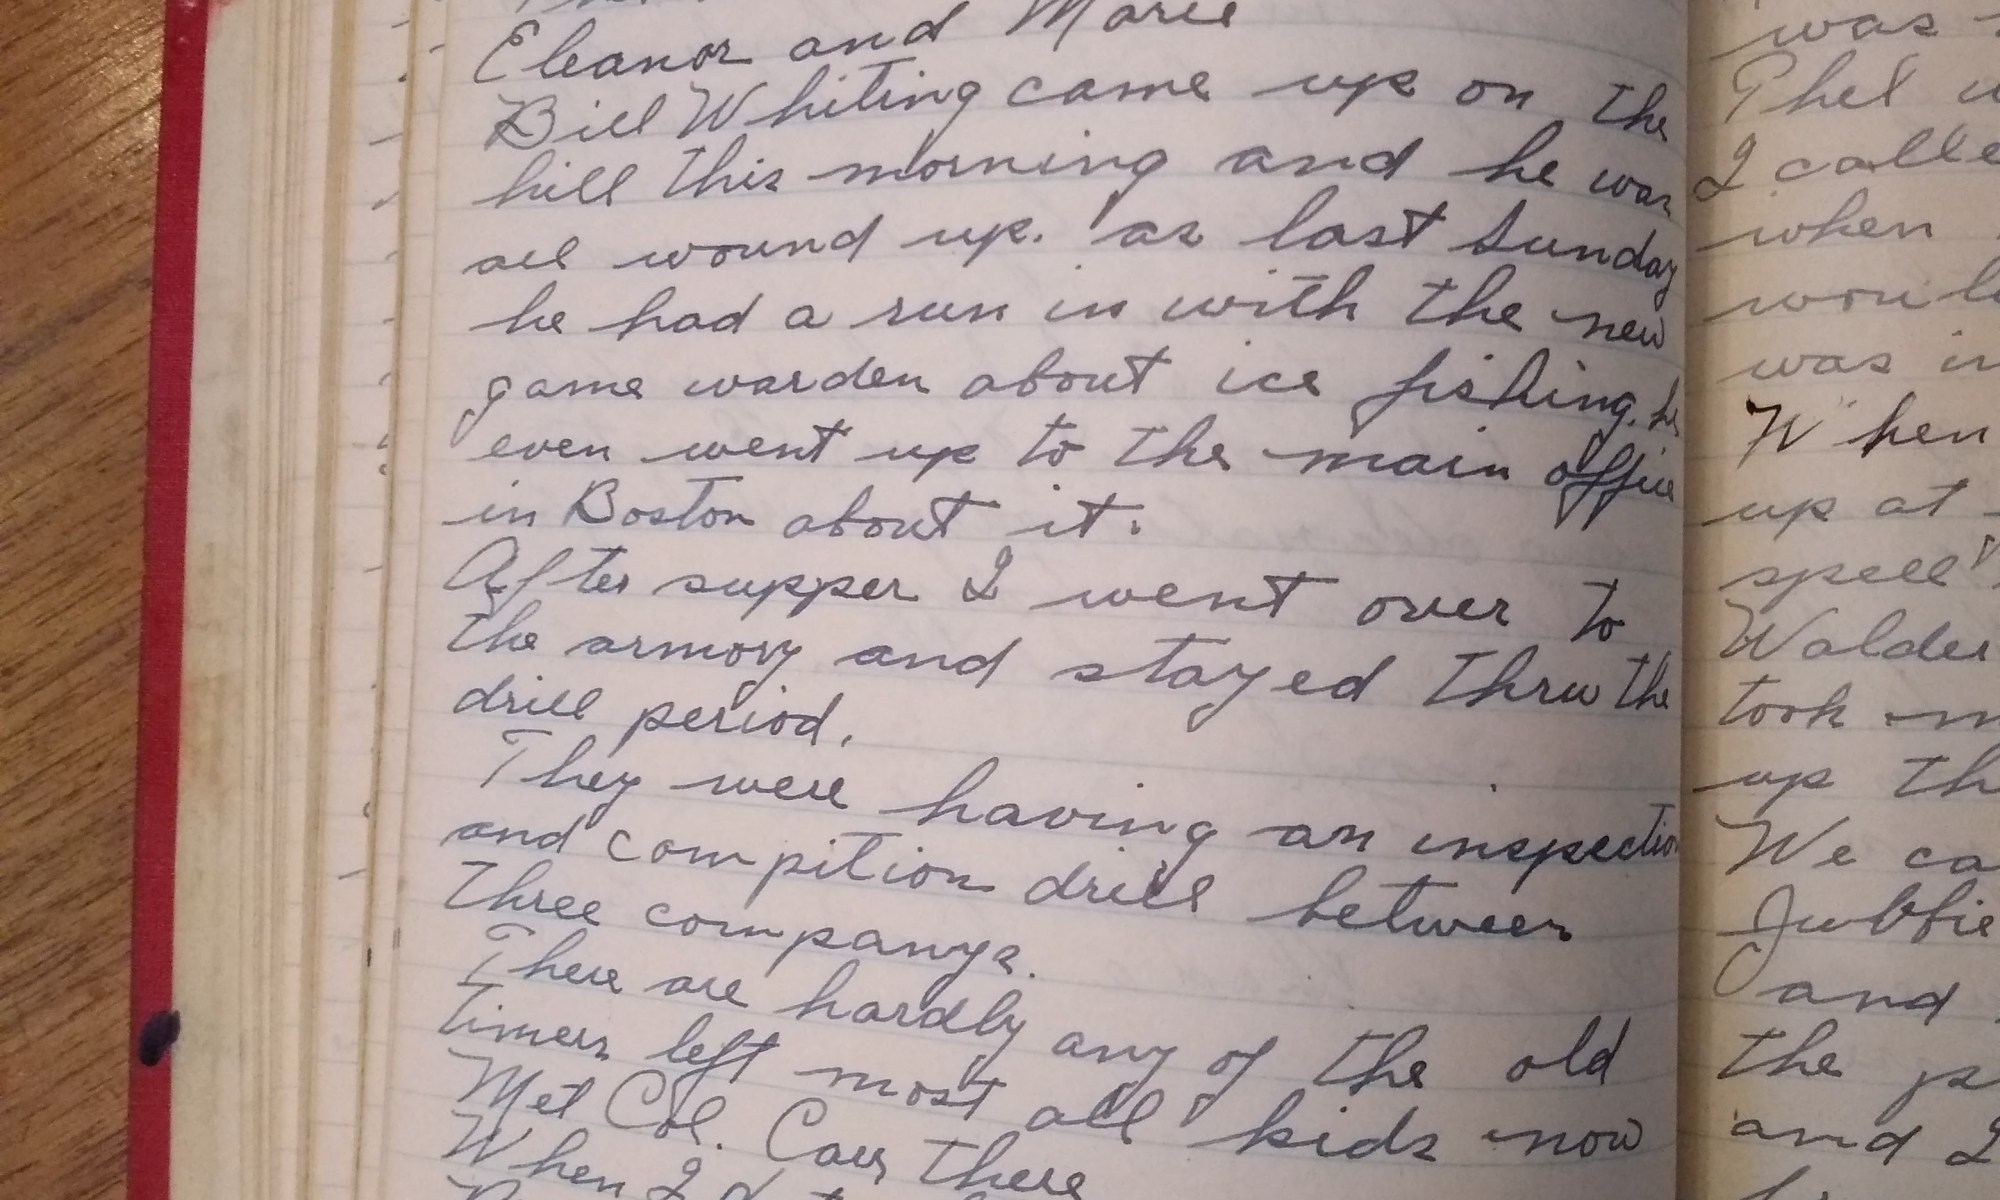 Eleanor and Marie
Bill Whiting came up on the
hill this morning and he was
all wound up. as last Sunday
he had a run in with the new
game warden about ice fishing. he
even went up to the main office
in Boston about it.
After supper I went over to
the armory and stayed thru the
drill period.
They were having an inspection
and compition drill between
three companys.
There are hardly any of the old
timers left most all kids now
Met Col. there
When I
was
Phel
I calle
when
woul
was in
When
up at
spell
Walder
took m
up th
We ca
Jubbie
and
the p
and I